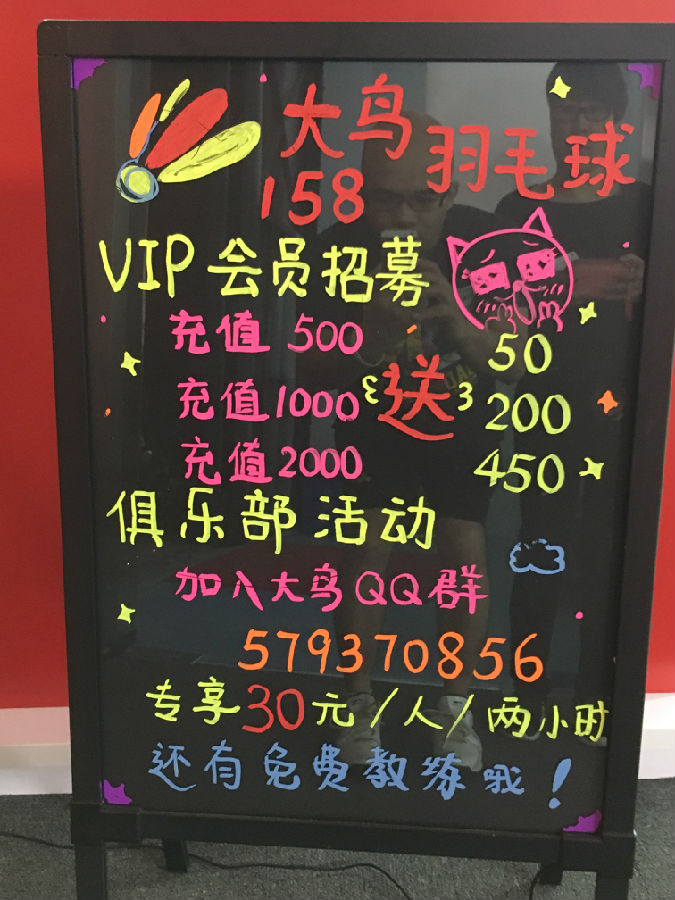 大鸟
158 羽毛球
VIP 会员招募
充值 500 50
充值1000 送 200
充值2000 450
俱乐部活动
加入大鸟QQ群
579370856
专享30元/人/两小时
还有免费教练哦!